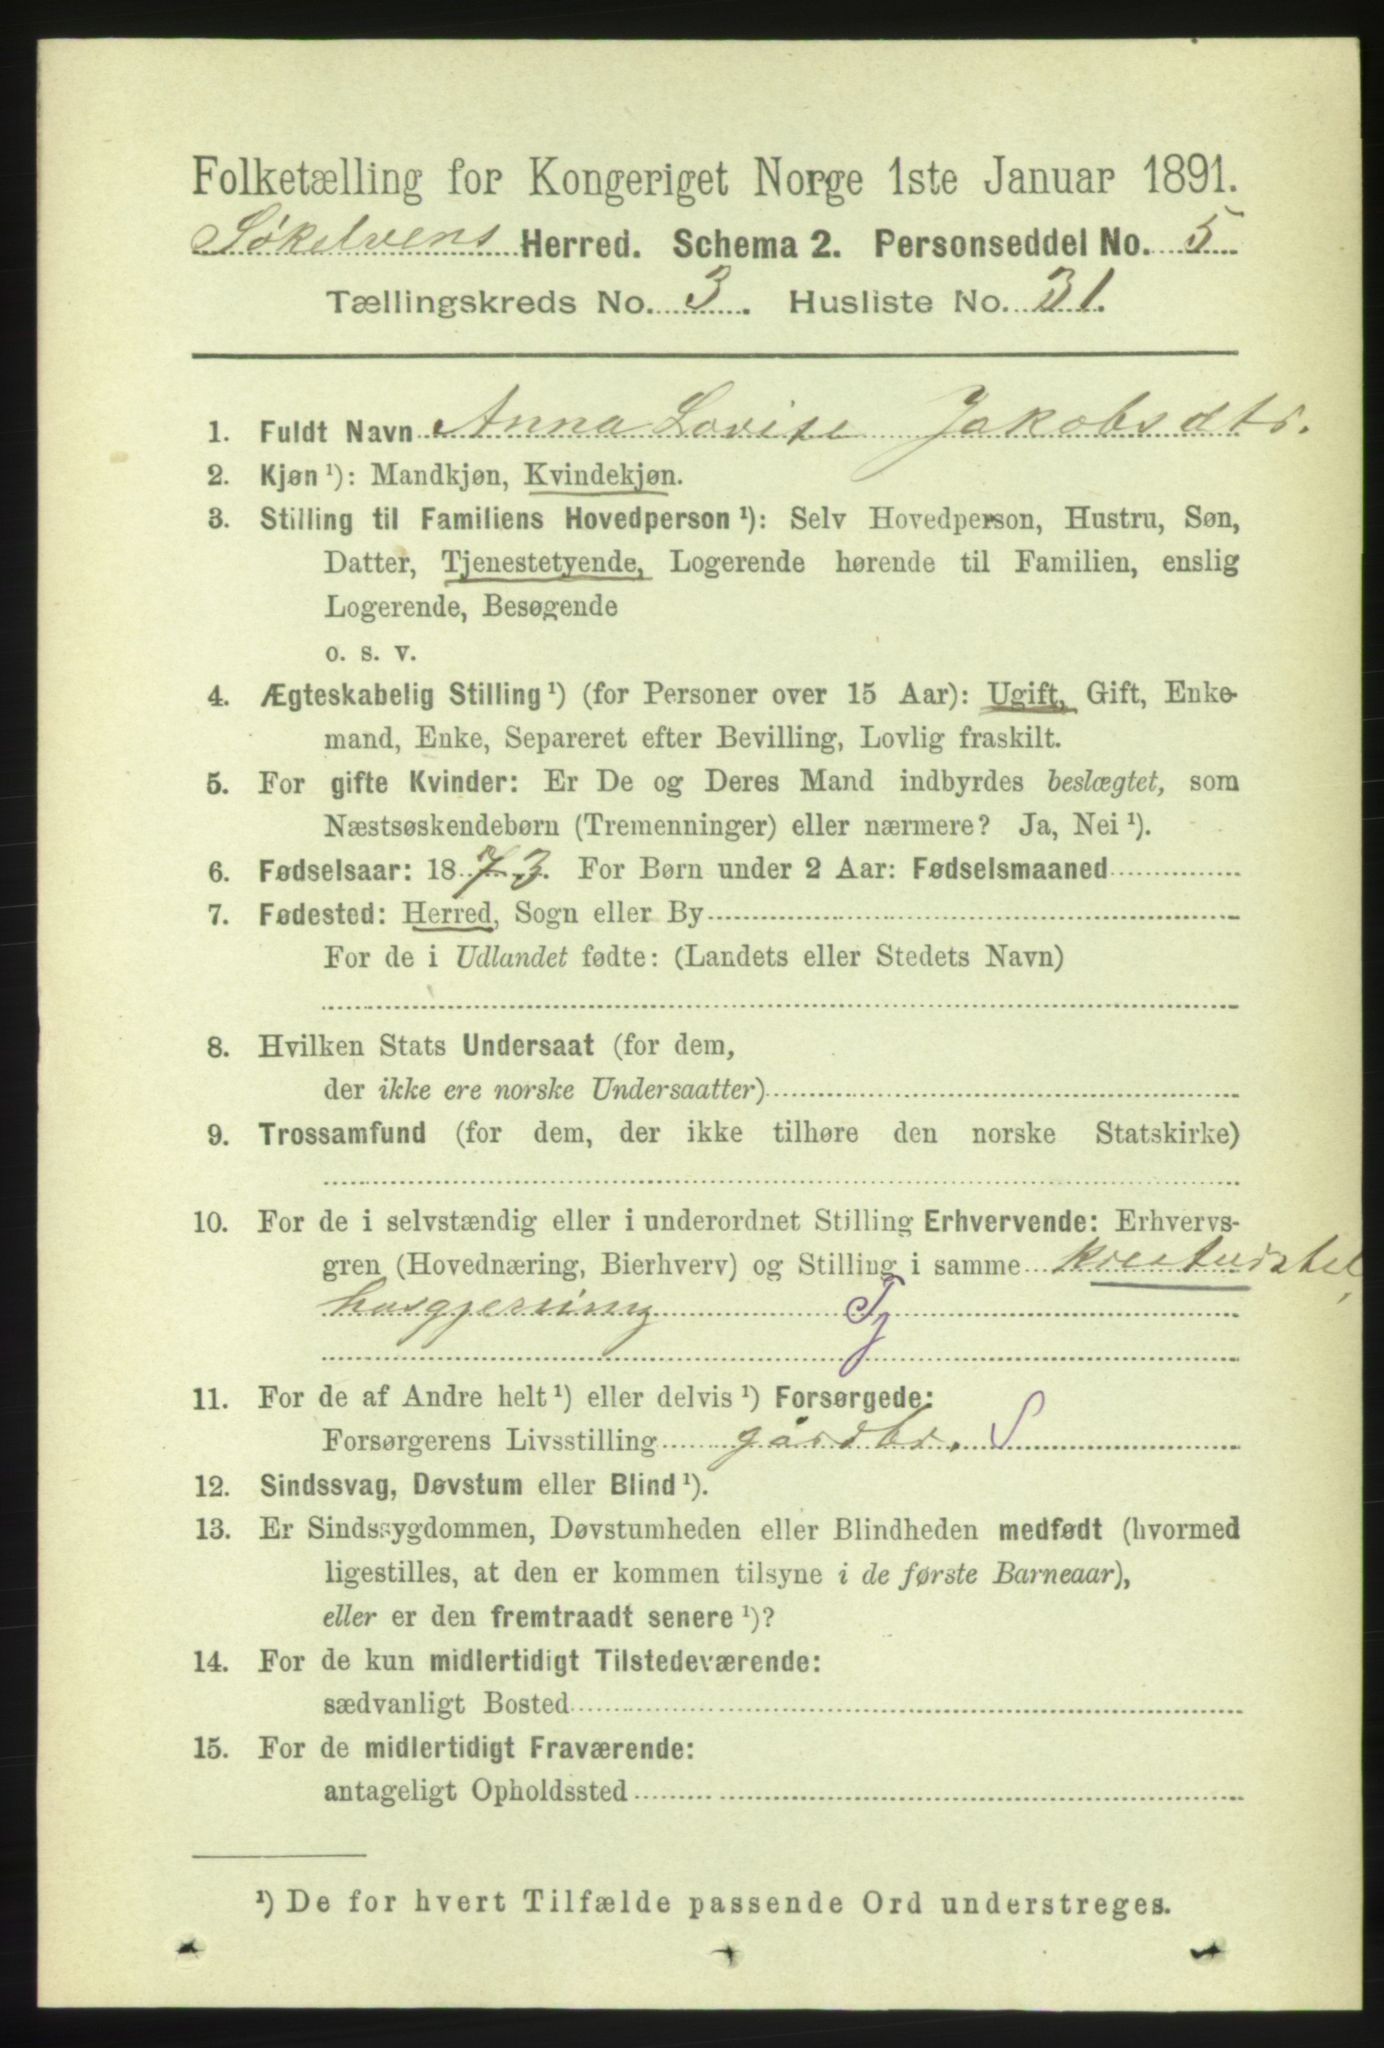 Folketælling for Kongeriget Norge 1ste Januar 1891.
Søkelvens Herred. Schema 2. Personseddel No. 5
Tællingskreds No. 3. Husliste No. 31.
1. Fuldt Navn Anna Lovise Jakobsdtr.
2. Kjøn ¹): Mandkjøn, Kvindekjøn.
3. Stilling til Familiens Hovedperson ¹): Selv Hovedperson, Hustru, Søn,
Datter, Tjenestetyende, Logerende hørende til Familien, enslig
Logerende, Besøgende
o. s. v.
4. Ægteskabelig Stilling ¹) (for Personer over 15 Aar): Ugift, Gift, Enke-
mand, Enke, Separeret efter Bevilling, Lovlig fraskilt.
5. For gifte Kvinder: Er De og Deres Mand indbyrdes beslægtet, som
Næstsøskendebørn (Tremenninger) eller nærmere? Ja, Nei ¹).
6. Fødselsaar: 1873. For Børn under 2 Aar: Fødselsmaaned
7. Fødested: Herred, Sogn eller By
For de i Udlandet fødte: (Landets eller Stedets Navn)
8. Hvilken Stats Undersaat (for dem,
der ikke ere norske Undersaatter)
9. Trossamfund (for dem, der ikke tilhøre den norske Statskirke)
10. For de i selvstændig eller i underordnet Stilling Erhvervende: Erhvervs-
gren (Hovednæring, Bierhverv) og Stilling i samme kreaturstel,
husgjerning Tj
11. For de af Andre helt ¹) eller delvis ¹) Forsørgede:
Forsørgerens Livsstilling gårdbr. S
12. Sindssvag, Døvstum eller Blind ¹).
13. Er Sindssygdommen, Døvstumheden eller Blindheden medfødt (hvormed
ligestilles, at den er kommen tilsyne i de første Barneaar),
eller er den fremtraadt senere ¹)?
14. For de kun midlertidigt Tilstedeværende:
sædvanligt Bosted
15. For de midlertidigt Fraværende:
antageligt Opholdssted
¹) De for hvert Tilfælde passende Ord understreges.